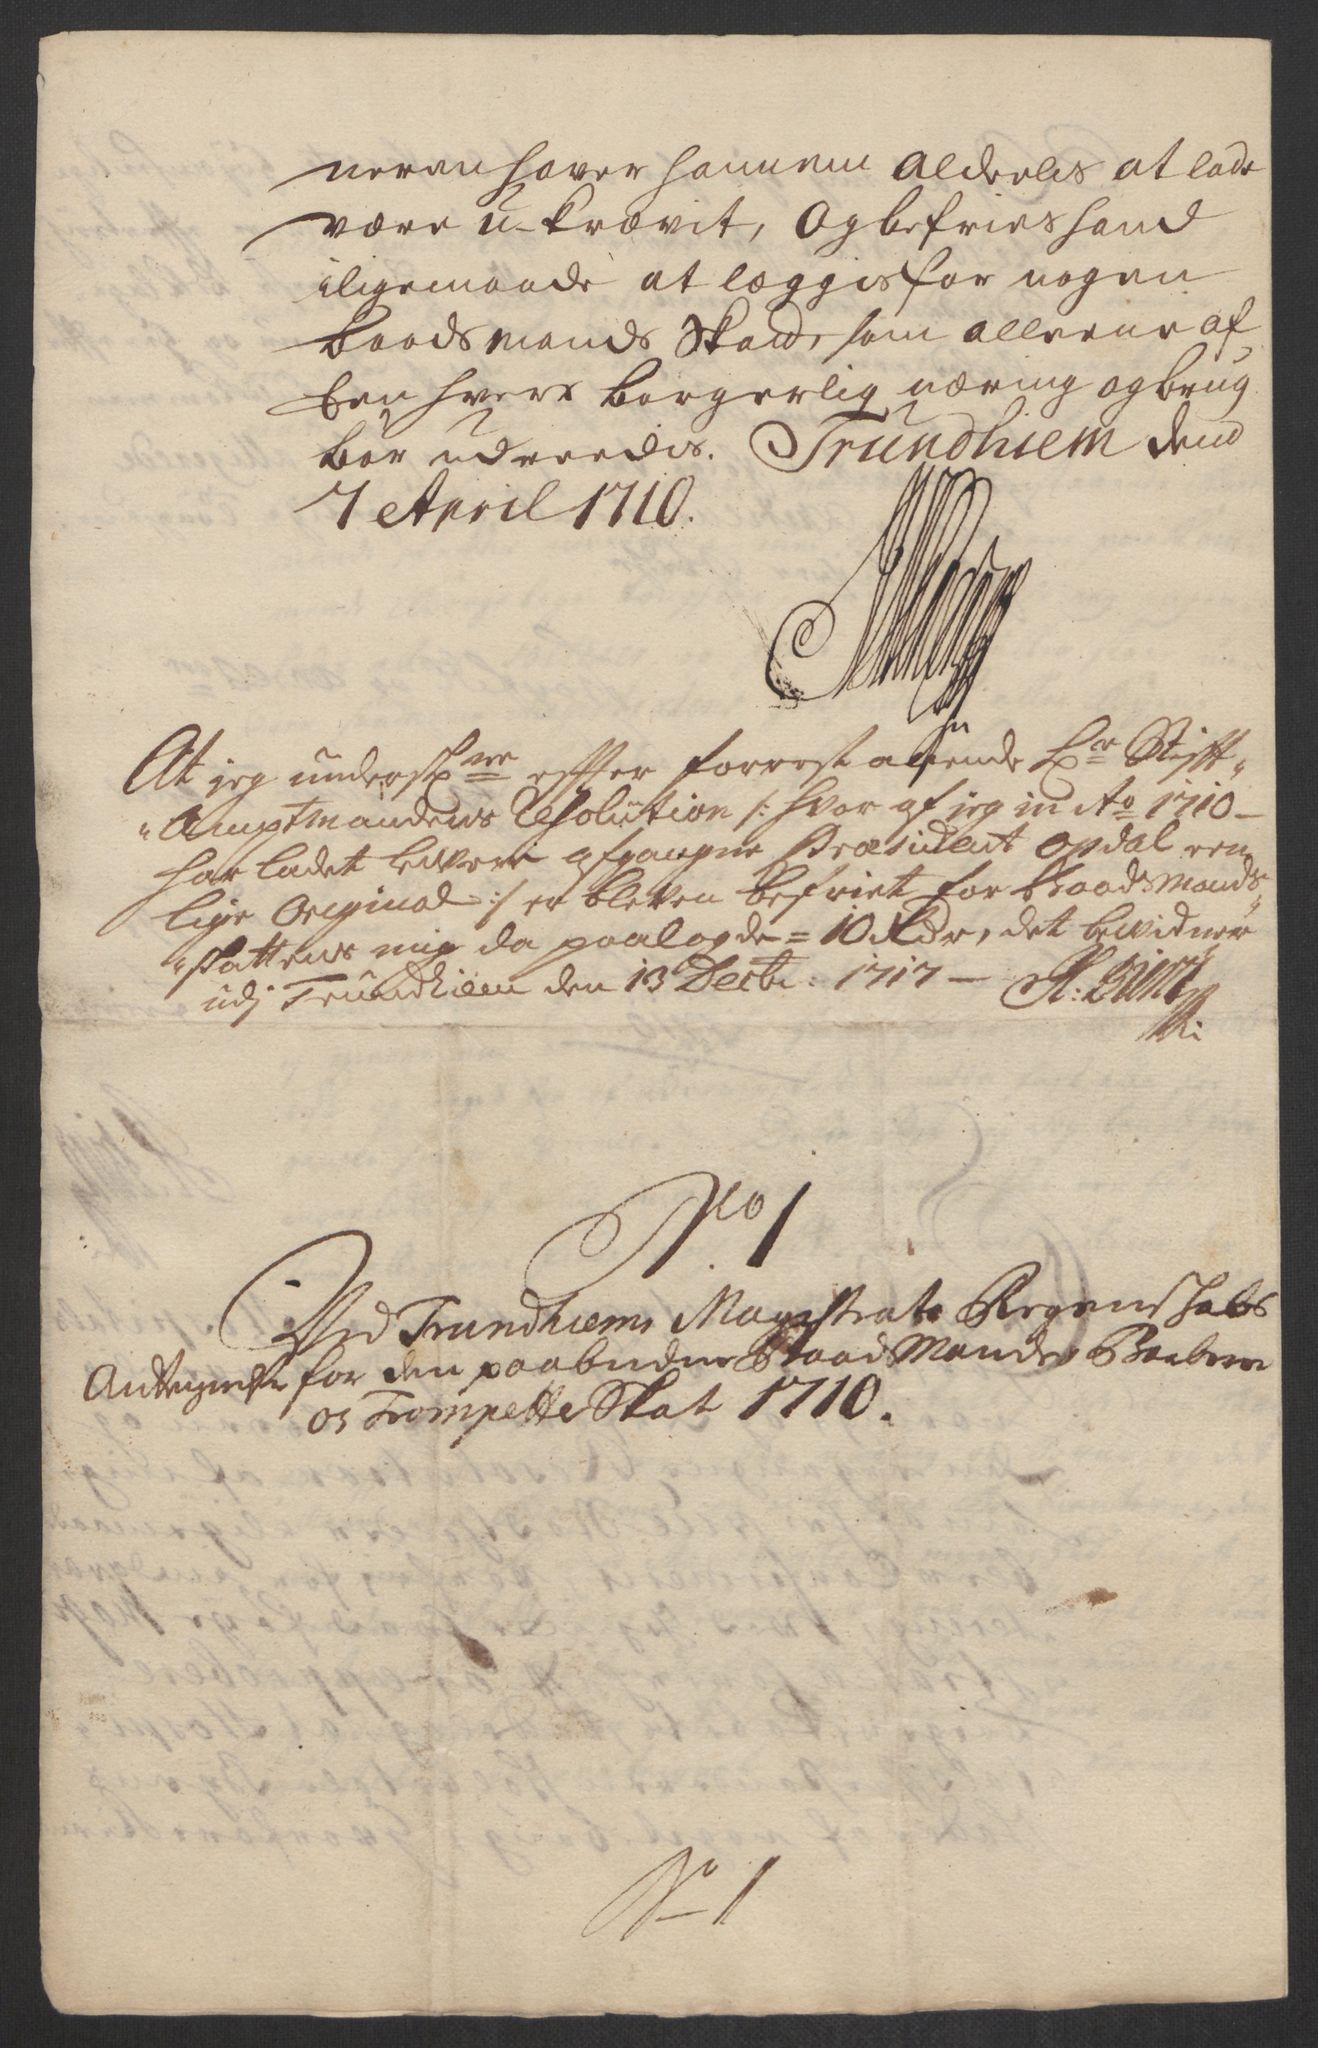 neren haver hannem Alderlis at lade
være u-krævit, Og befries hand
iligemaade at læggis for nogen
baadsmands Skat, som alleene af
Een hvers borgerlig næring og brug
bør udreedis. Trundhiem dend
7 April 1710.
At jeg undersk.ne efter forrestaaende Hr Stifft-
Amptmandens Resolution /: hvor af jeg in Ao 1710 -
har ladet levere afgangne Præsident Opdal den
lige Original :/ er bleven befriet for Baadsmands-
skattens mig da paalagde = 10 Rdr, det bevidner
udj Trundhiem den 13 Decbr: 1717 -
No 1
Ved Trundhiems Magistrats Regenskabs
Antegnelse for den paabudne Baads Mands
og Trompette Skat 1710.
No 1